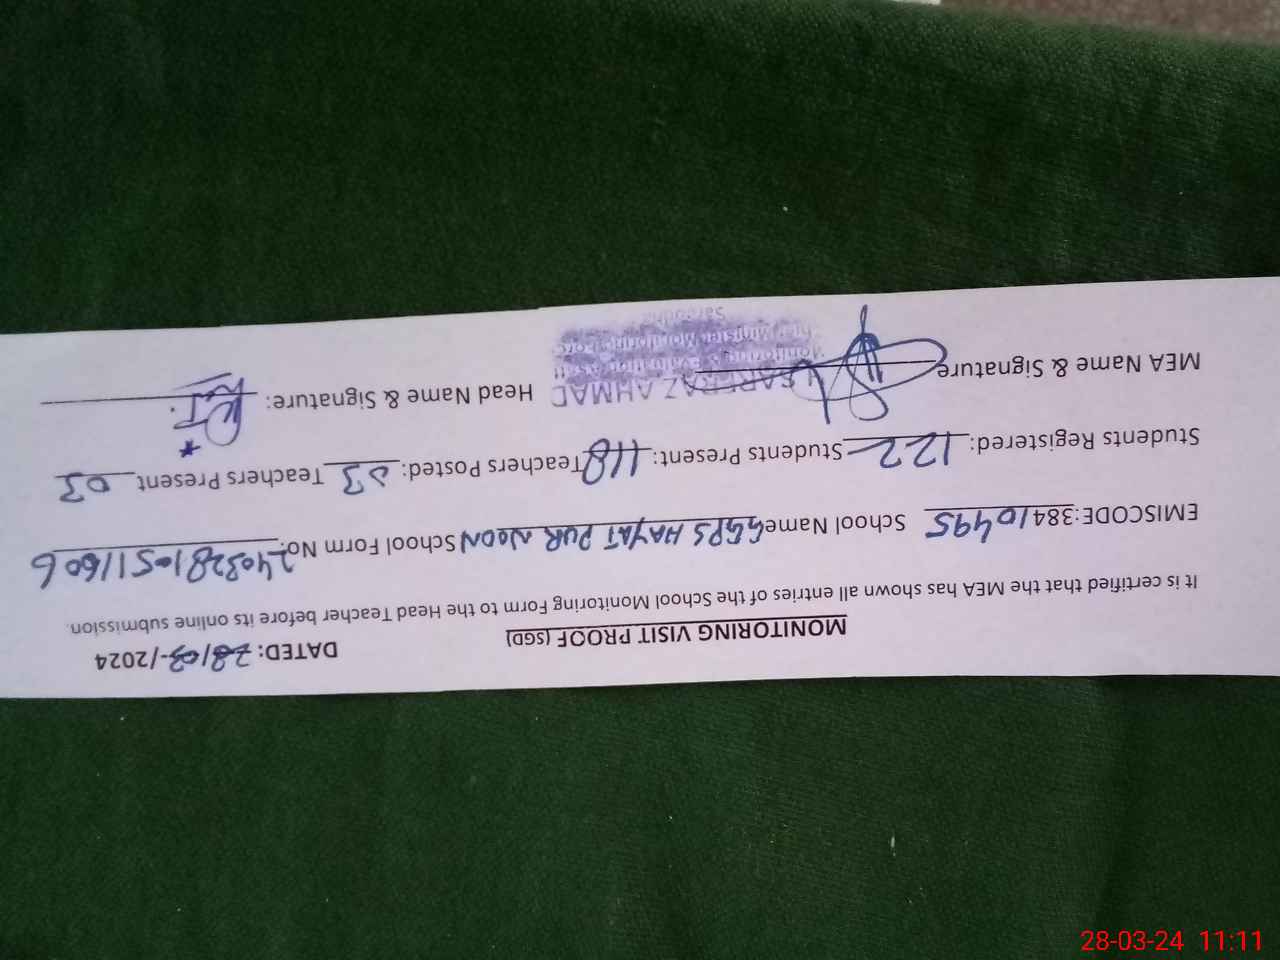 MONITORING VISIT PROOF (SGD) DATED: 28/03-/2024
It is certified that the MEA has shown all entries of the School Monitoring Form to the Head Teacher before its online submission.
EMISCODE:38410495 School Name GGPS HAYAT PUR NOON School Form No: 2403281051 1606
Students Registered: 122 Students Present: 118 Teachers Posted: 03 Teachers Present 03
MEA Name & Signature SARFRAZ AHMAD Head Name & Signature:
Monitoring & Evaluation Asstt
Chief Minister Monitoring Force
Sargodha
28-03-24 11:11